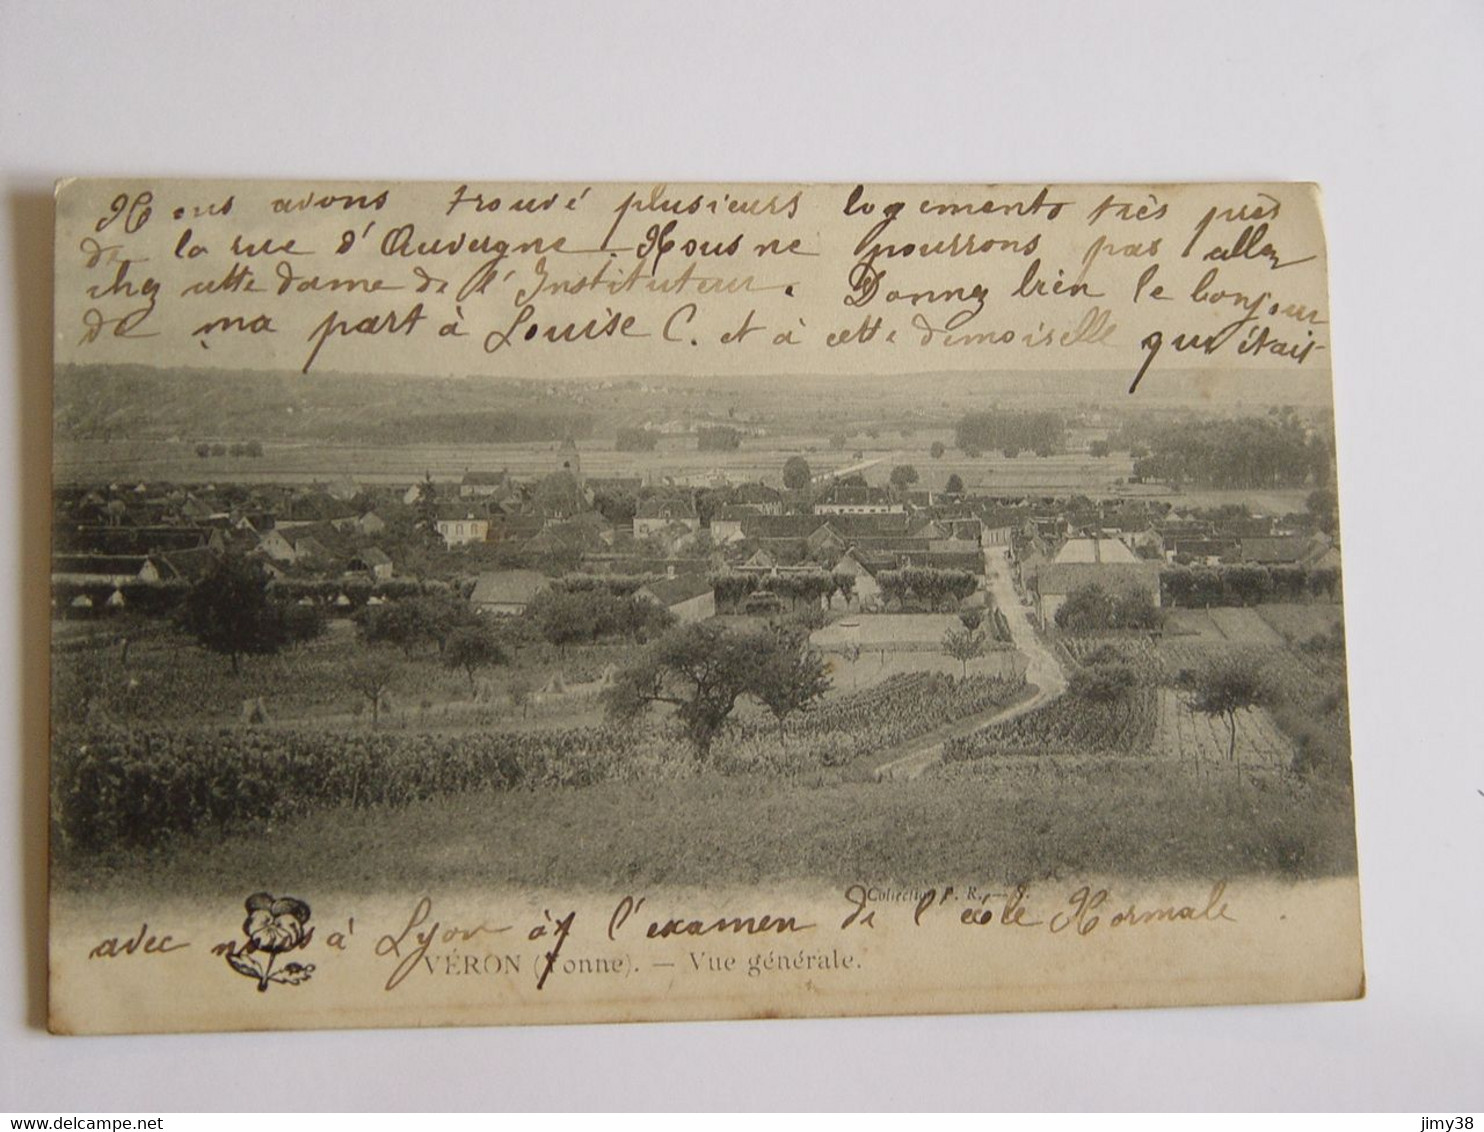 Nous avons trouvé plusieurs logements très près
de la rue d'Auvergne. Nous ne pourrons pas aller
chez cette dame de l'Instituteur. Donnez bien le bonjour
de ma part à Louise C. et à cette demoiselle qui était
Collection P. R.
avec nous à Lyon à l'examen de l'école Normale.
VÉRON (Yonne). — Vue générale.
delcampe.net
jimy38